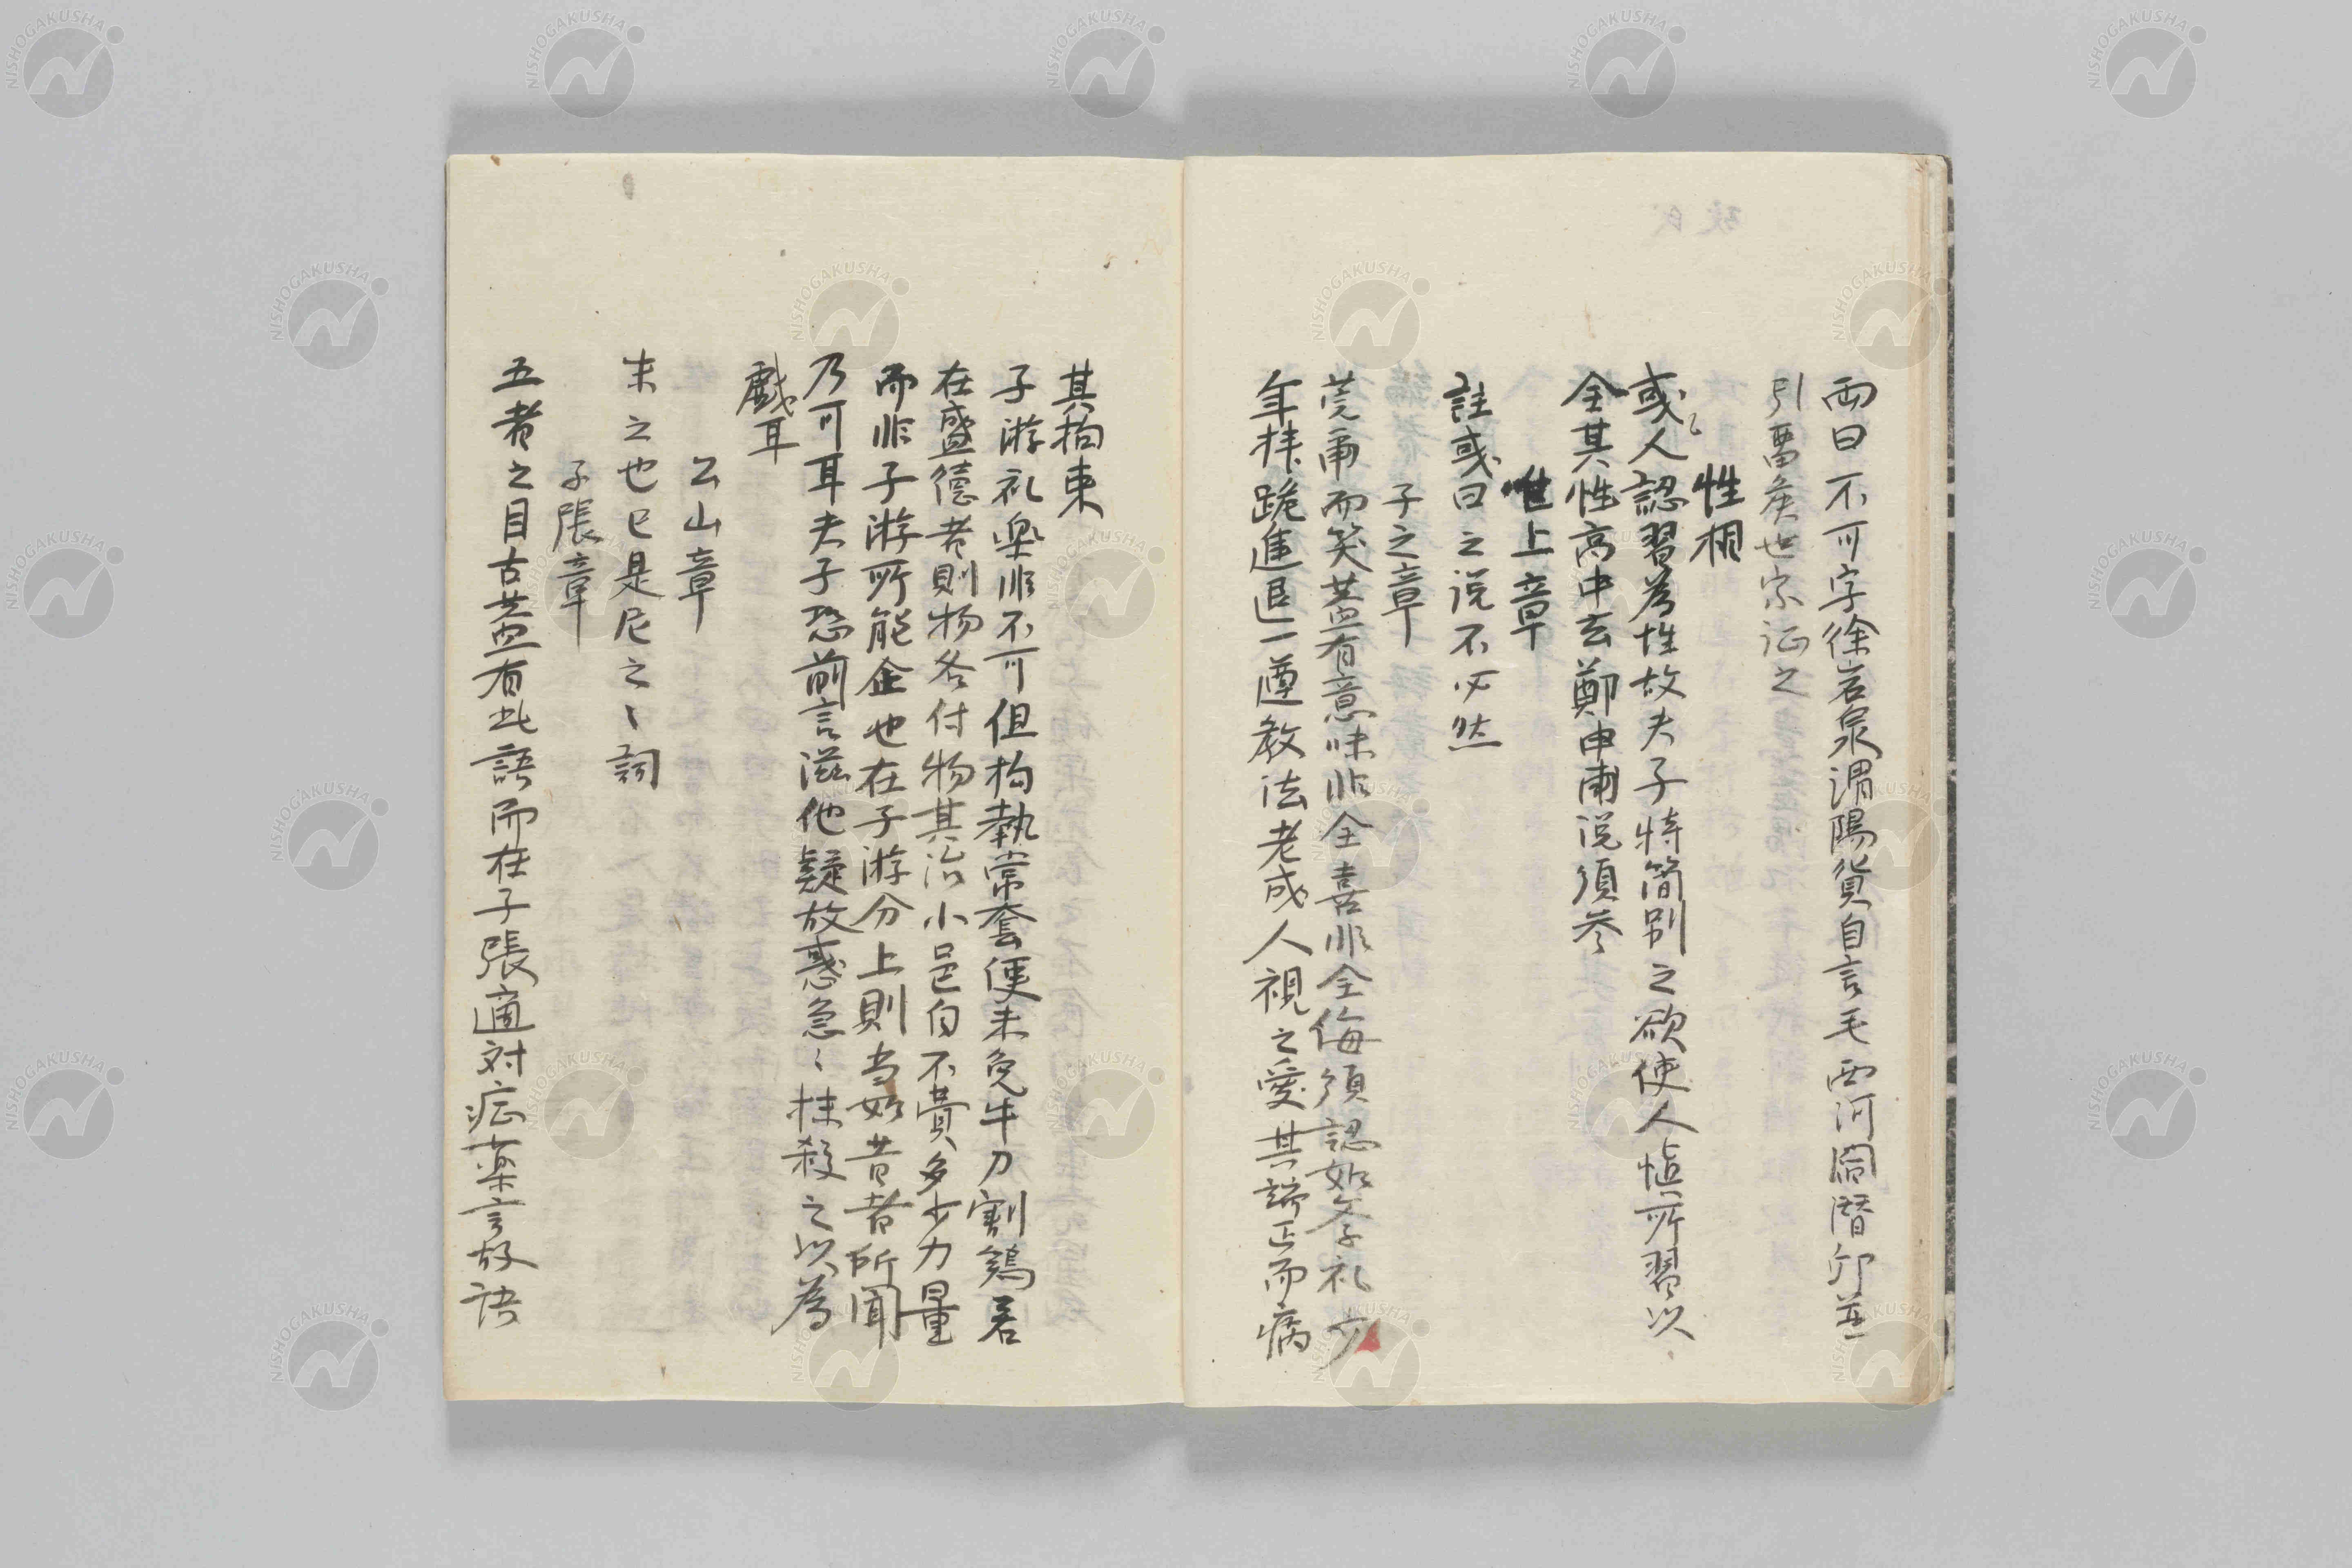 両曰不可字徐岩泉謂陽貨自言毛西河閻潜邱並
引畱矦世家証之
性相
或人認習為性故夫子特簡別之欲使人慎所習以
全其性高中玄鄭申甫説須参
唯上章
註或曰之説不必然
子之章
莞甭而笑蓋有意味非全喜非全侮須認如冬礼少
年拝跪進退一遵教法老成人視之愛其端正而病
其拘束
子游礼楽非不可但拘執常套便未免牛刀割鶏若
在盛徳者則物各付物其治小邑自不費多少力量
而非子游所能企也在子游分上則当如昔者所聞
乃可耳夫子恐前言滋他疑故惑急〻抹殺之以為
戯耳
公山章
末之也已是尼之〻詞
子張章
五者之目古蓋有此語而在子張適対症薬言故語
NISHOGAKUSHA